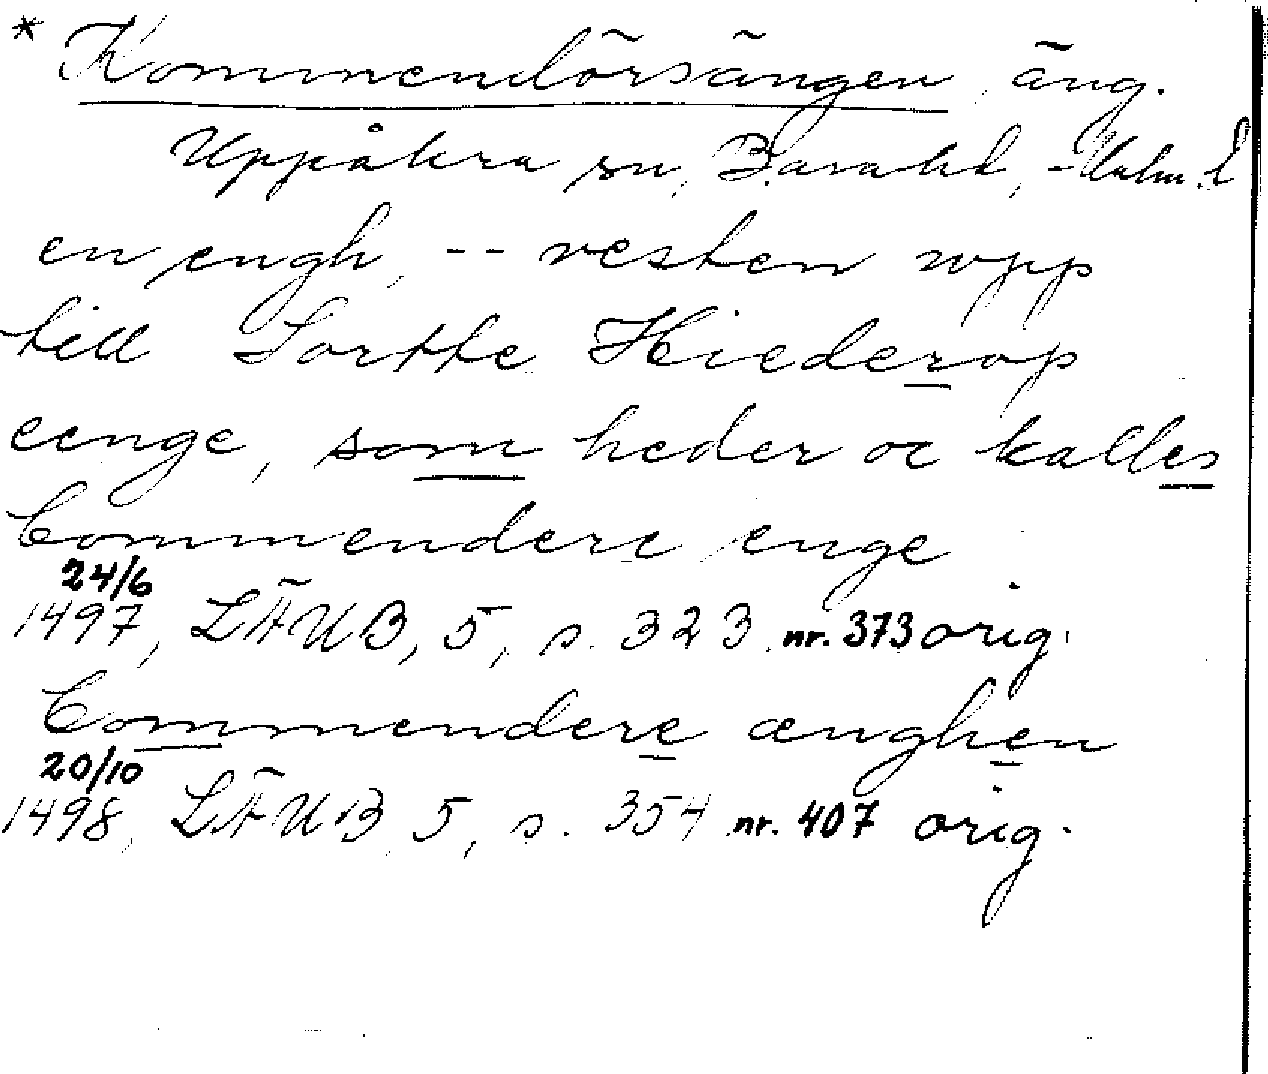 * Kommendörsängen, äng.
Uppåkra sn, Bara hd, Malm. l
en engh, -- vesten wpp
till Sortte Hiederop
eenge, som heder oc kalles
Commendere enge
24/6
1497, LÄUB, 5, s. 323 nr. 373 orig.
Commendere ænghen
20/10
1498, LÄUB 5, s. 354 nr. 407 orig.